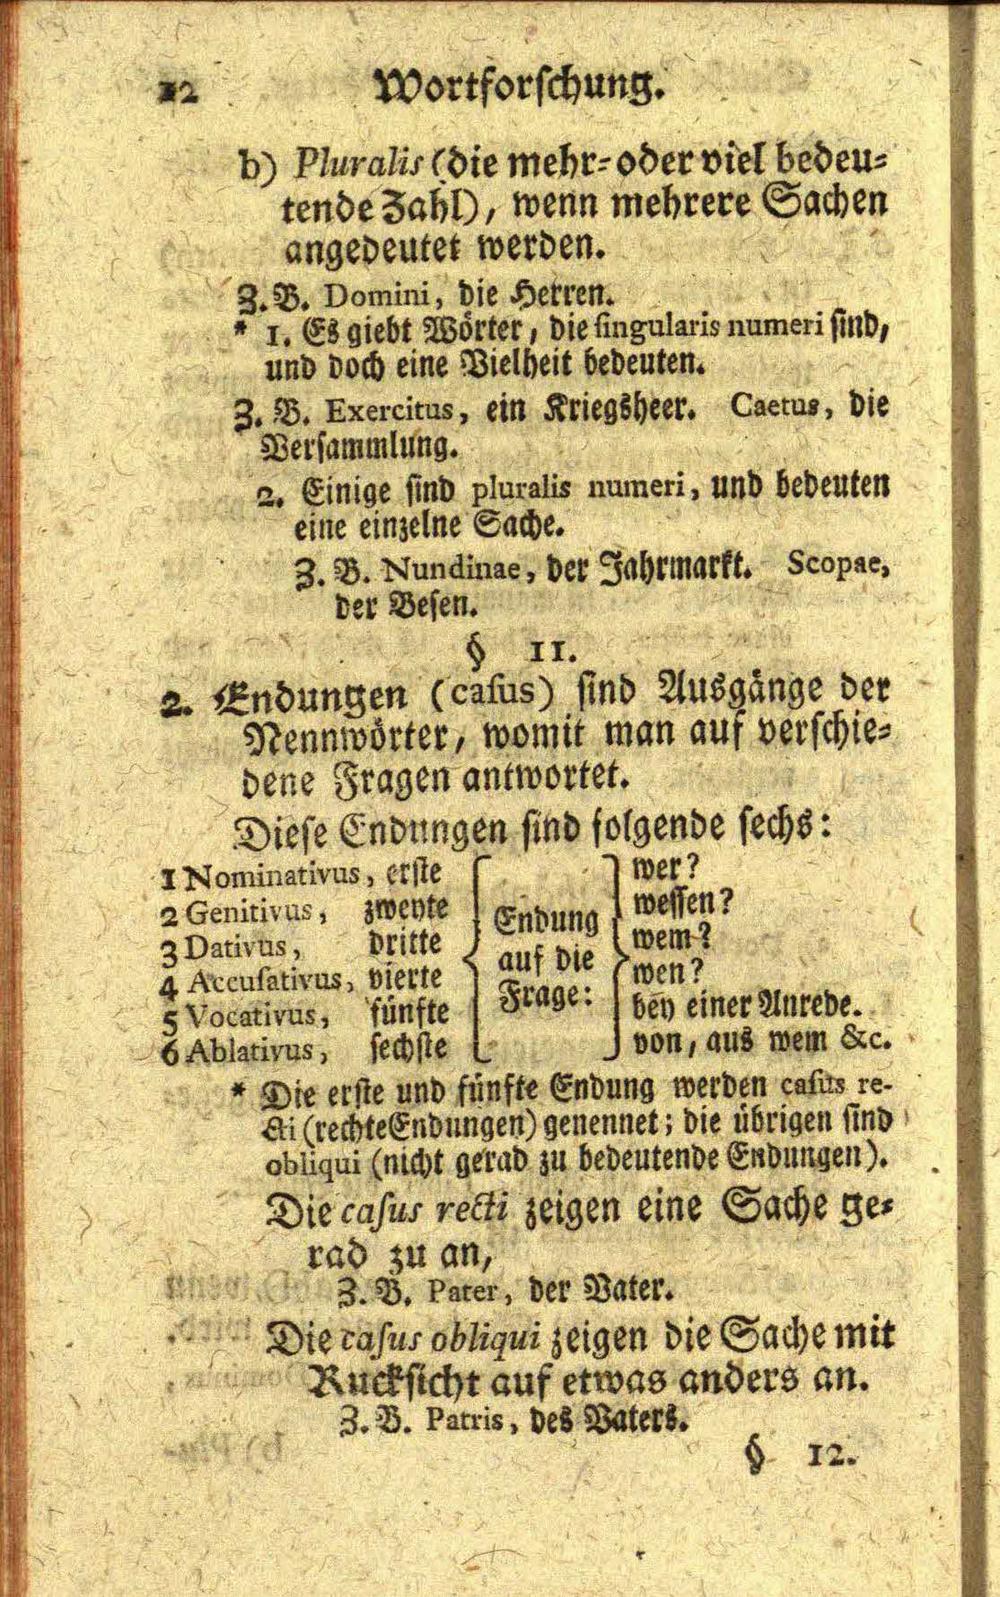 12 Wortforschung.
b) Pluralis (die mehr- oder viel bedeu-
tende Zahl), wenn mehrere Sachen
angedeutet werden.
Z. B. Domini, die Herren.
* 1. Es giebt Wörter, die singularis numeri sind,
und doch eine Vielheit bedeuten.
Z. B. Exercitus, ein Kriegsheer. Caetus, die
Versammlung.
2. Einige sind pluralis numeri, und bedeuten
eine einzelne Sache.
Z. B. Nundinae, der Jahrmarkt. Scopae,
der Besen.
§ 11.
2. Endungen (casus) sind Ausgänge der
Nennwörter, womit man auf verschie-
dene Fragen antwortet.
Diese Endungen sind folgende sechs:
1 Nominativus, erste wer?
2 Genitivus, zweyte Endung wessen?
3 Dativus, dritte wem?
4 Accusativus, vierte auf die wen?
5 Vocativus, fünfte Frage: bey einer Anrede.
6 Ablativus, sechste von, aus wem &c.
* Die erste und fünfte Endung werden casus re-
cti (rechte Endungen) genennet; die übrigen sind
obliqui (nicht gerad zu bedeutende Endungen).
Die casus recti zeigen eine Sache ge-
rad zu an,
Z. B. Pater, der Vater.
Die casus obliqui zeigen die Sache mit
Rucksicht auf etwas anders an.
Z. B. Patris, des Vaters.
§ 12.